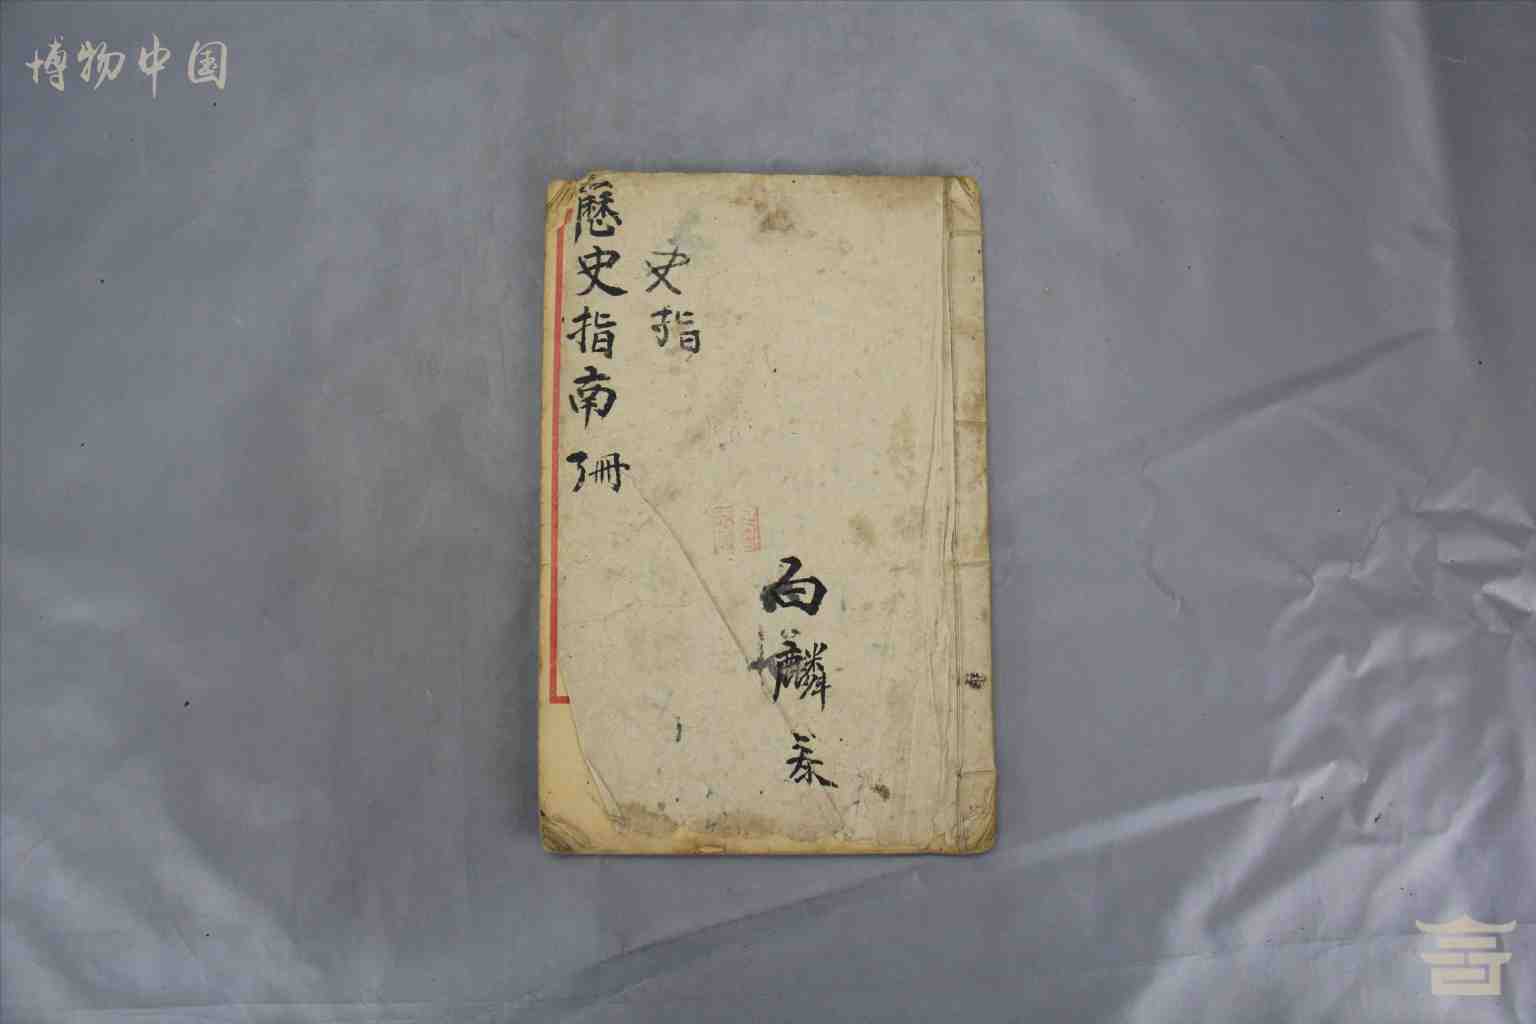 博物中国
歷史指南 冊
史指
白麟